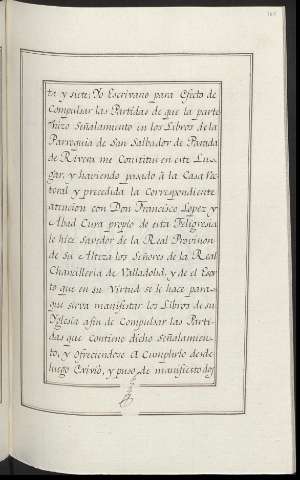 ta y siete; Yo Escrivano para Efecto de
Compulsar las Partidas de que la parte
hizo Señalamiento en los Libros de la
Parroquia de San Salbador de Parada
de Rivera me Constitui en este Lu-
gar, y haviendo pasado à la Casa Rec
toral y precedida la Correspondiente
atencion con Don Francisco Lopez y
Abad Cura propio de esta Feligresia
le hize Savedor de la Real Provision
de su Alteza los Señores de la Real
Chancilleria de Valladolid, y de el Escri
to que en su Virtud se le hace para
que sirva manifestar los Libros de su
Yglesia afin de Compulsar las Parti-
das que contiene dicho Señalamien-
to, y ofreciendose à Cumplirlo desde
luego Exivió, y puso de manifiesto dos